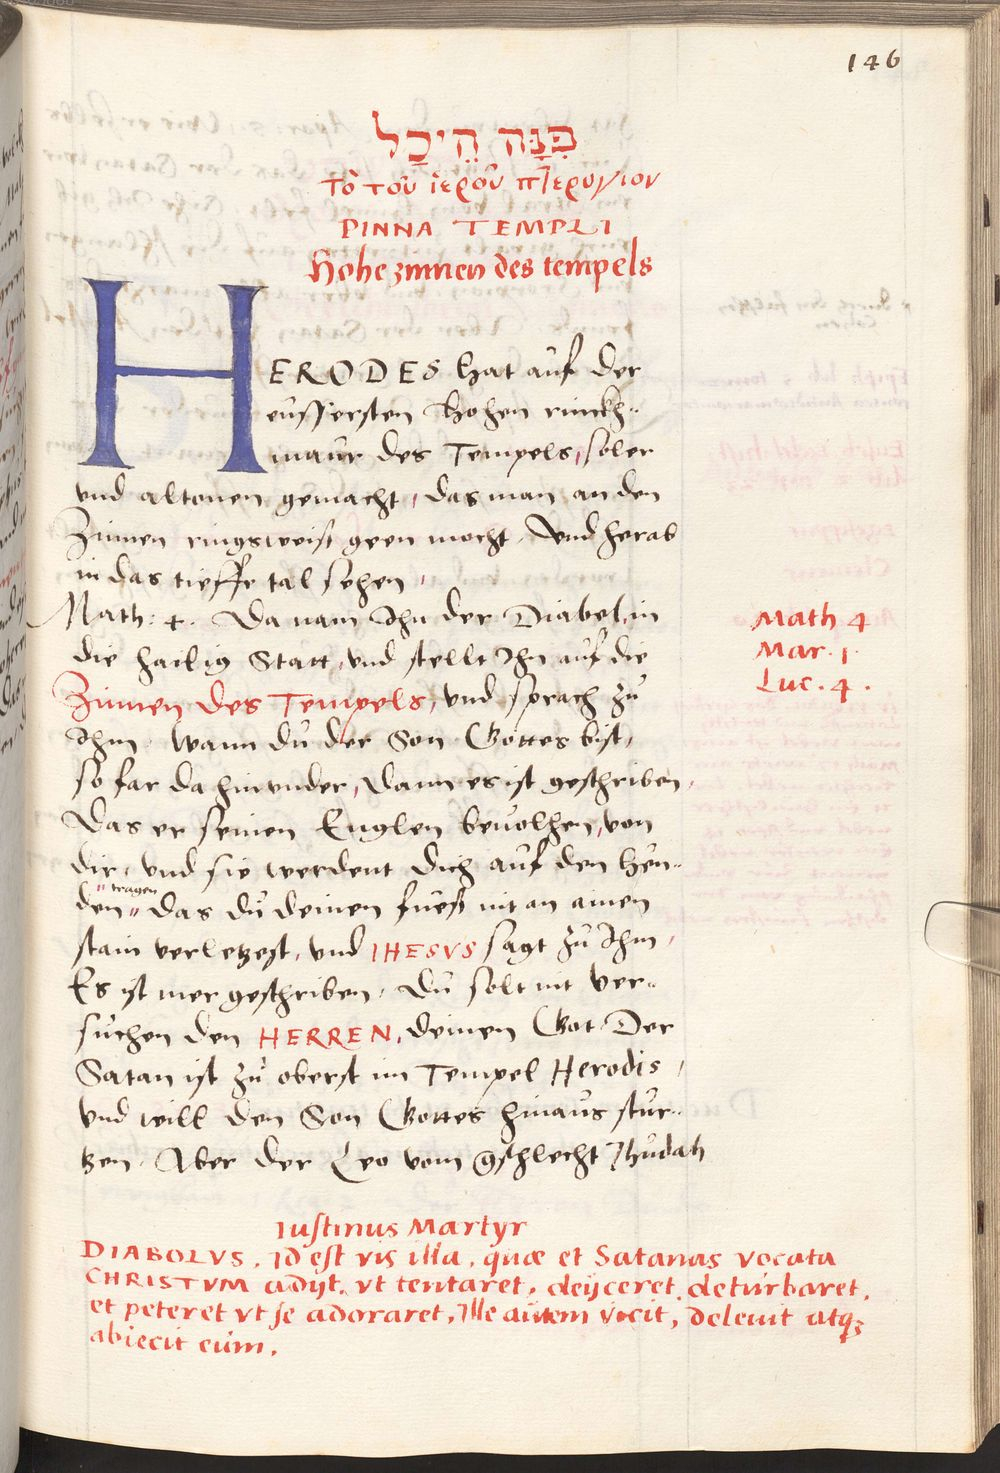 146
פִּנָּה הֵיכָל
τὸ τοῦ ἱεροῦ πτερυγιον
PINNA TEMPLI
Hohe zinnen des tempels
HERODES hat auf der
eussersten hohen rinckh„
maur des Tempels, soler
und altonen gemacht, das man an den
Zinnen ringsweiß geen mocht, Und herab
in das tieffe tal sehen,
Math: 4. Da nam Ihn der Diabel, in
die hailig Statt, und stellt Ihn auf die
Zinnen des Tempels, und sprach zů
Ihm, Wann du der Son Gottes bist,
so far da hinunder, Dann es ist geschriben,
Das er seinen Englen bevolhen, von
dir, und sie werdent dich auf den hen„
den „tragen„ Das du deinen fueß nit an ainen
stain verletzest, und IHESVS sagt zů Ihm,
Es ist mer geschriben, Du solt nit ver„
sůchen den HERREN, deinen Got. Der
Satan ist zů oberst im Tempel Herodis,
Und will den Son Gottes hinaus stur„
tzen. Aber der Leo vom gschlecht Jhudah
Math 4
Mar. 1.
Luc. 4.
Iustinus Martyr
DIABOLVS, Id est vis illa, quæ et Satanas vocata
CHRISTVM adijt, vt tentaret, deijceret, deturbaret,
et peteret vt se adoraret, Ille autem vicit, delevit atqꝫ
abiecit eum.